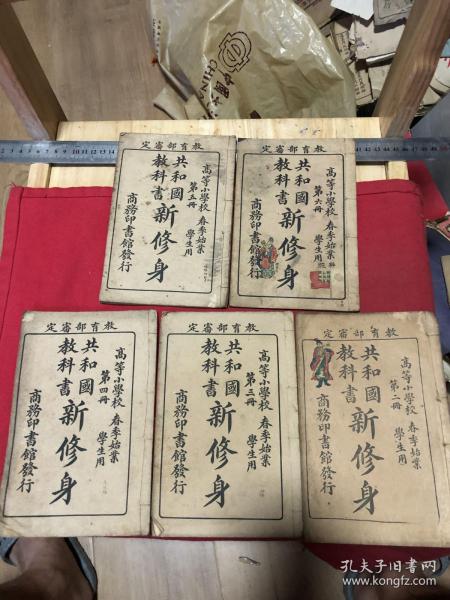 教育部審定
高等小學校 春季始業
第五冊 學生用
共和國
教科書
新修身
商務印書館發行
教育部審定
高等小學校 春季始業
第六冊 學生用
共和國
教科書
新修身
商務印書館發行
教育部審定
高等小學校 春季始業
第四冊 學生用
共和國
教科書
新修身
商務印書館發行
教育部審定
高等小學校 春季始業
第三冊 學生用
共和國
教科書
新修身
商務印書館發行
教育部審定
高等小學校 春季始業
第二冊 學生用
共和國
教科書
新修身
商務印書館發行
CHINA
孔夫子旧书网
www.kongfz.com